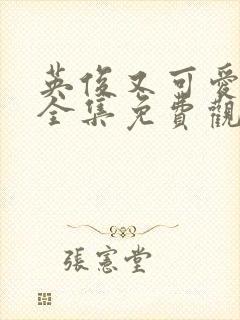 英俊又可愛
全集免費觀
張憲堂